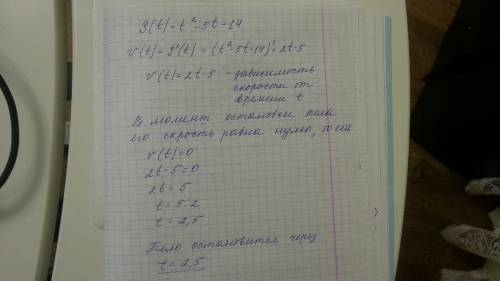 S(t)=t²-5t-14
v(t)=S'(t)=(t²-5t-14)'=2t-5
v(t)=2t-5 - зависимость
скорости от
времени t
В момент остановки тела
его скрость равна нулю, то есть
v(t)=0
2t-5=0
2t=5
t=5:2
t=2,5
Тело остановится через
t=2,5